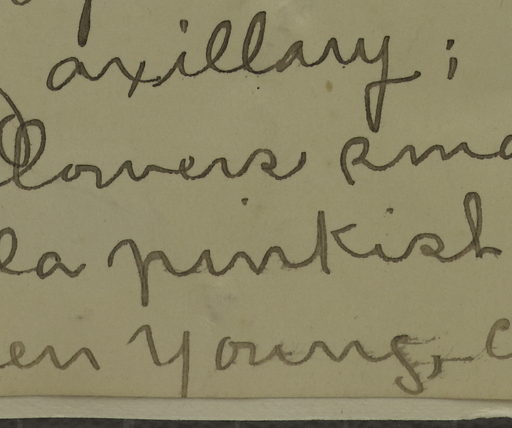 axillary;
flowers sma
la pinkish
en young, c